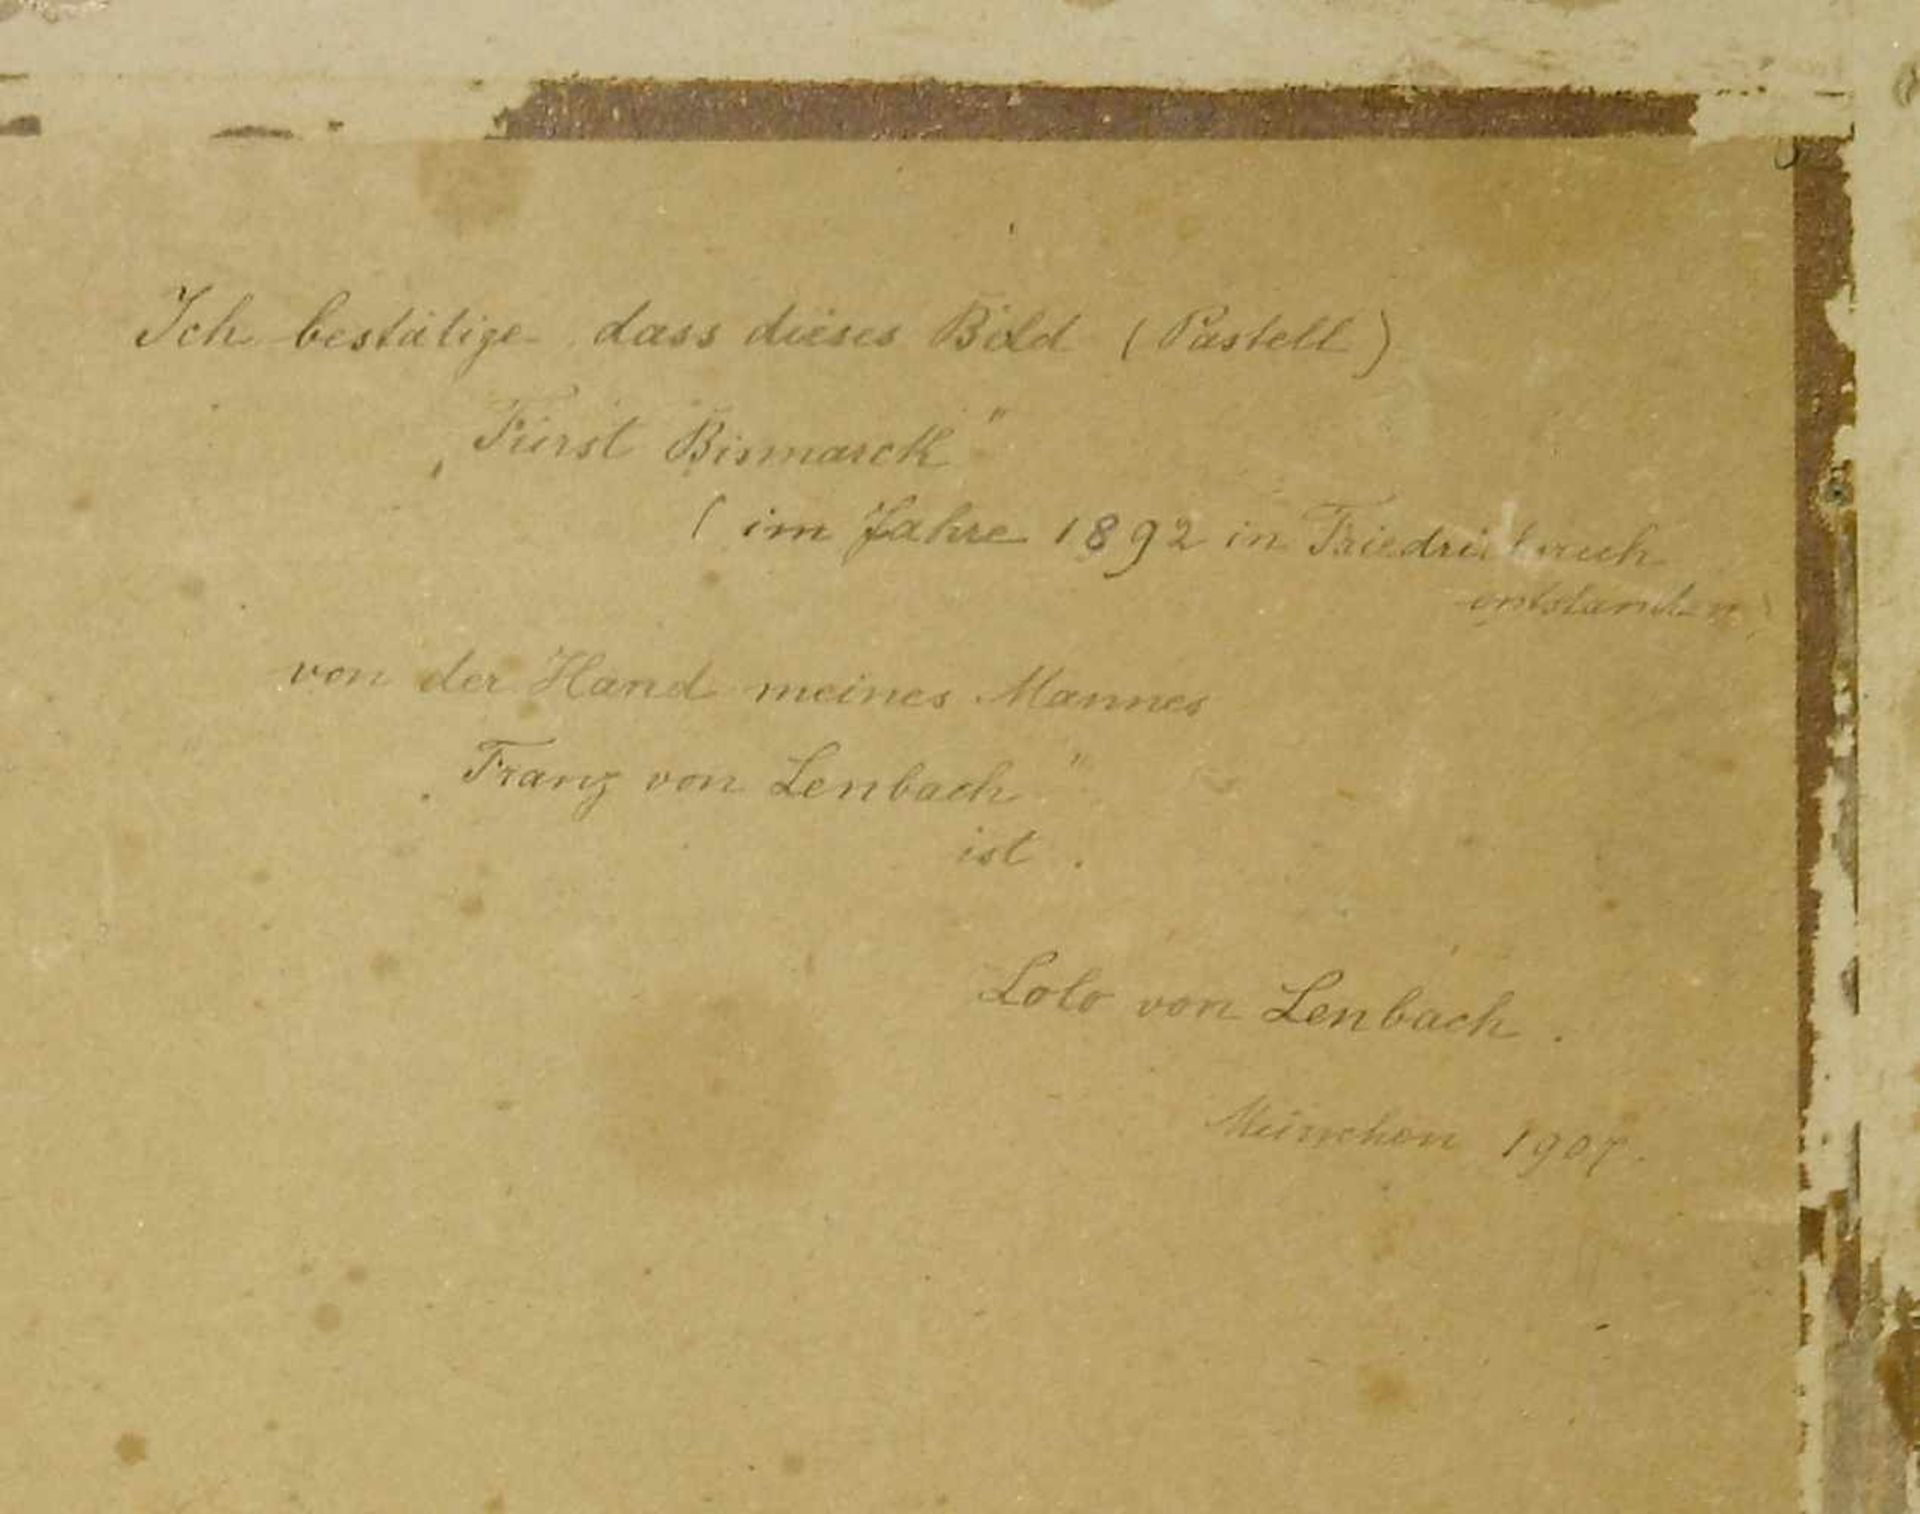 Ich bestätige dass dieses Bild (Pastell)
„Fürst Bismarck"
(im Jahre 1892 in Friedrichsruh
entstanden)
von der Hand meines Mannes
„Franz von Lenbach"
ist.
Lolo von Lenbach.
München 1907.